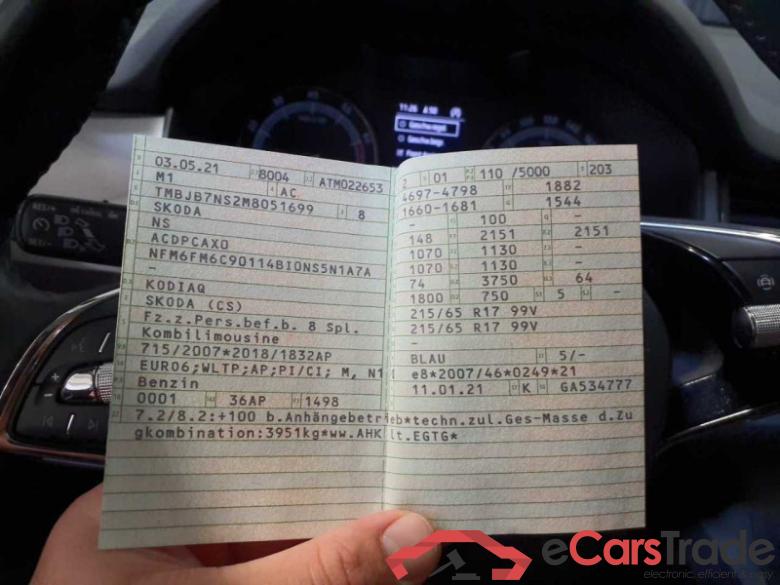 11:26
03.05.21 8004 ATM022653
M1 AC
TMBJB7NS2M8051699 8
SKODA
NS
ACDPCAX0
NFM6FM6C90114BI0NS5N1A7A
-
KODIAQ
SKODA (CS)
Fz.z.Pers.bef.b. 8 Spl.
Kombilimousine
715/2007*2018/1832AP
EURO6;WLTP;AP;PI/CI; M, N1
Benzin
0001 36AP 1498
2 01 110 /5000 203
4697-4798 1882
1660-1681 1544
- 100 -
148 2151 2151
1070 1130 -
1070 1130 -
74 3750 64
1800 750 5 -
215/65 R17 99V
215/65 R17 99V
-
BLAU 5/-
e8*2007/46*0249*21
11.01.21 K GA534777
7.2/8.2:+100 b.Anhängebetrieb*techn.zul.Ges-Masse d.Zu
gkombination:3951kg*ww.AHK lt.EGTG*
eCarsTrade
electronic, efficient & easy